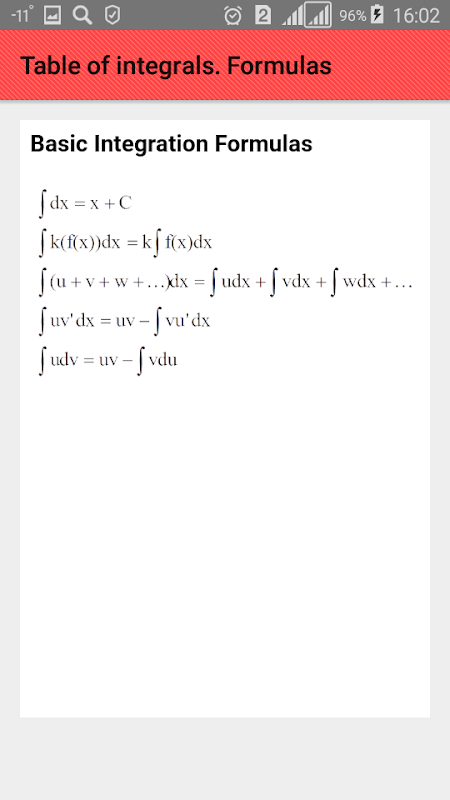 -11° 2 96% 16:02
Table of integrals. Formulas
Basic Integration Formulas
∫ dx = x + C
∫ k(f(x))dx = k ∫ f(x)dx
∫ (u + v + w + ...)dx = ∫ udx + ∫ vdx + ∫ wdx + ...
∫ uv'dx = uv − ∫ vu'dx
∫ udv = uv − ∫ vdu